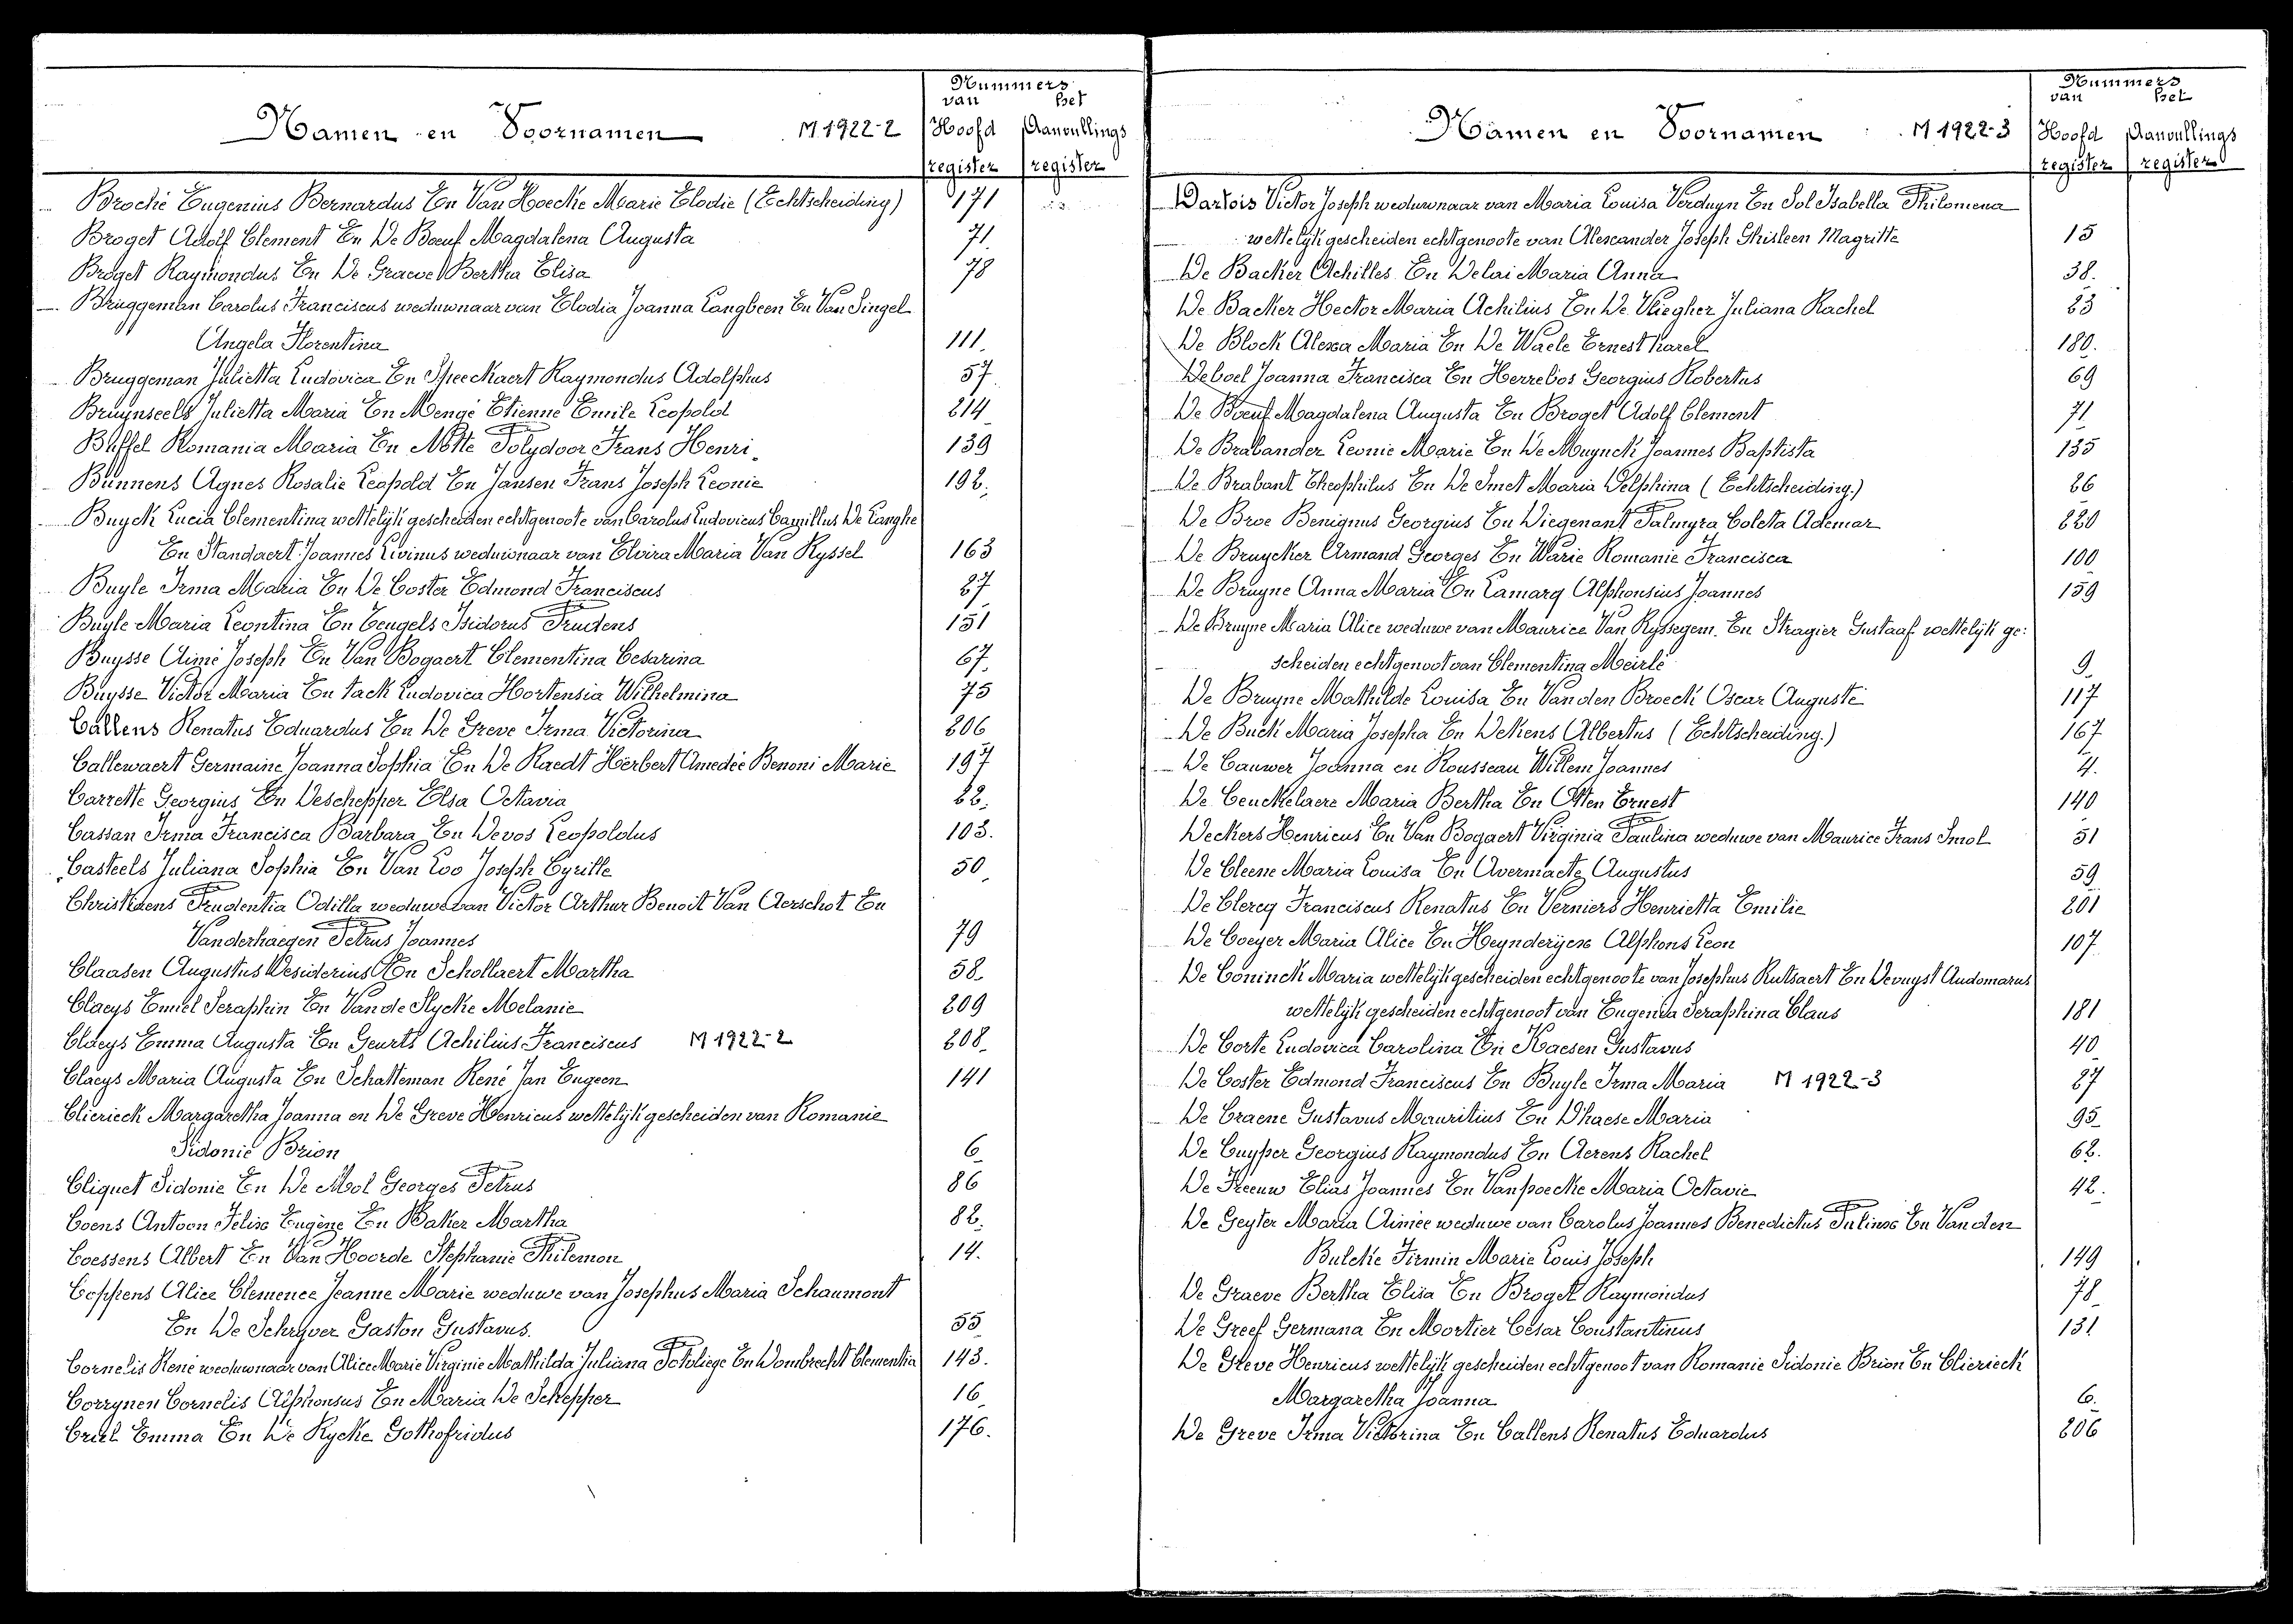 Namen en Voornamen M 1922-2
Nummers
van het
Hoofd Aanvullings
register register
Brocké Eugenius Bernardus En Van Hoecke Marie Elodie (Echtscheiding) 171
Broget Adolf Clement En De Boeuf Magdalena Augusta 71
Broget Raymondus En De Graeve Bertha Elisa 78
Bruggeman Carolus Franciscus weduwnaar van Elodia Joanna Langbeen En Van Singel
Angela Florentina 111.
Bruggeman Julietta Ludovica En Speeckaert Raymondus Adolphus 57
Bruynseels Julietta Maria En Mengé Etienne Emile Leopold 214
Buffel Romania Maria En Motte Polydoor Frans Henri. 139
Bunnens Agnes Rosalie Leopold En Jansen Frans Joseph Leonie 192.
Buyck Lucia Clementina wettelijk gescheiden echtgenoote van Carolus Ludovicus Camillus De Langhe
En Standaert Joannes Livinus weduwnaar van Elvira Maria Van Ryssel 163
Buyle Irma Maria En De Coster Edmond Franciscus 27
Buyle Maria Leontina En Teugels Isidorus Prudens 151
Buysse Aimé Joseph En Van Bogaert Clementina Cesarina 67
Buysse Victor Maria En Tack Ludovica Hortensia Wilhelmina 75
Callens Renatus Eduardus En De Greve Irma Victorina 206
Callewaert Germaine Joanna Sophia En De Raedt Herbert Amedée Benoni Marie 197
Carrette Georgius En Deschepper Elsa Octavia 22.
Cassan Irma Francisca Barbara En Devos Leopoldus 103.
Casteels Juliana Sophia En Van Loo Joseph Cyrille 50
Christiaens Prudentia Odilla weduwe van Victor Arthur Benoit Van Aerschot En
Vanderhaegen Petrus Joannes 79
Claasen Augustus Desiderius En Schollaert Martha 58
Claeys Emiel Seraphin En Van de Slycke Melanie 209
Claeys Emma Augusta En Geurts Achilius Franciscus M 1922-2 208
Claeys Maria Augusta En Schatteman René Jan Eugeen 141
Clierieck Margaretha Joanna en De Greve Henricus wettelijk gescheiden van Romanie
Sidonie Brion 6
Cliquet Sidonie En De Mol Georges Petrus 86
Coens Antoon Felix Eugène En Baker Martha 82.
Coessens Albert En Van Hoorde Stephanie Philemon 14.
Coppens Alice Clemence Jeanne Marie weduwe van Josephus Maria Schaumont
En De Schryver Gaston Gustavus. 55
Cornelis René weduwnaar van Alice Marie Virginie Mathilda Juliana Potvliege En Dombrecht Clementia 143.
Corrynen Cornelis Alphonsus En Maria De Schepper 16
Criel Emma En De Rycke Gothofridus 176.
Namen en Voornamen M 1922-3
Nummers
van het
Hoofd Aanvullings
register register
Dartois Victor Joseph weduwnaar van Maria Louisa Verduyn En Sol Isabella Philomena
wettelijk gescheiden echtgenoote van Alexander Joseph Ghisleen Magritte 15
De Backer Achilles En Delai Maria Anna 38.
De Backer Hector Maria Achilius En De Vliegher Juliana Rachel 23
De Block Alexa Maria En De Waele Ernest Karel 180.
Deboel Joanna Francisca En Herrebos Georgius Robertus 69
De Boeuf Magdalena Augusta En Broget Adolf Clement 71
De Brabander Leonie Marie En De Muynck Joannes Baptista 135
De Brabant Theophilus En De Smet Maria Delphina (Echtscheiding.) 26
De Broe Benignus Georgius En Diegenant Palmyra Coleta Ademar 220
De Bruycker Armand Georges En Warie Romanie Francisca 100
De Bruyne Anna Maria En Lamarq Alphonsius Joannes 159
De Bruyne Maria Alice weduwe van Maurice Van Ryssegem. En Stragier Gustaaf wettelijk ge:
scheiden echtgenoot van Clementina Meirlé 9
De Bruyne Mathilde Louisa En Van den Broeck Oscar Auguste 117
De Buck Maria Josepha En Dekens Albertus (Echtscheiding.) 167
De Cauwer Joanna en Rousseau Willem Joannes 4.
De Ceuckelaere Maria Bertha En Otten Ernest 140
Deckers Henricus En Van Bogaert Virginia Paulina weduwe van Maurice Frans Smol 51
De Cleene Maria Louisa En Avermaete Augustus 59
De Clercq Franciscus Renatus En Verniers Henrietta Emilie 201
De Coeyer Maria Alice En Heynderyckx Alphons Leon 107
De Coninck Maria wettelijk gescheiden echtgenoote van Josephus Rutsaert En Devuyst Audomarus
wettelijk gescheiden echtgenoot van Eugenia Seraphina Claus 181
De Corte Ludovica Carolina En Kaesen Gustavus 40
De Coster Edmond Franciscus En Buyle Irma Maria M 1922-3 27
De Craene Gustavus Mauritius En D'haese Maria 95
De Cuyper Georgius Raymondus En Aerens Rachel 62.
De Freeuw Elias Joannes En Vanpoecke Maria Octavie 42.
De Geyter Maria Aimée weduwe van Carolus Joannes Benedictus Pulinx En Van den
Bulcke Firmin Marie Louis Joseph 149
De Graeve Bertha Elisa En Broget Raymondus 78
De Greef Germana En Mortier César Constantinus 131
De Greve Henricus wettelijk gescheiden echtgenoot van Romanie Sidonie Brion En Clierieck
Margaretha Joanna 6.
De Greve Irma Victorina En Callens Renatus Eduardus 206